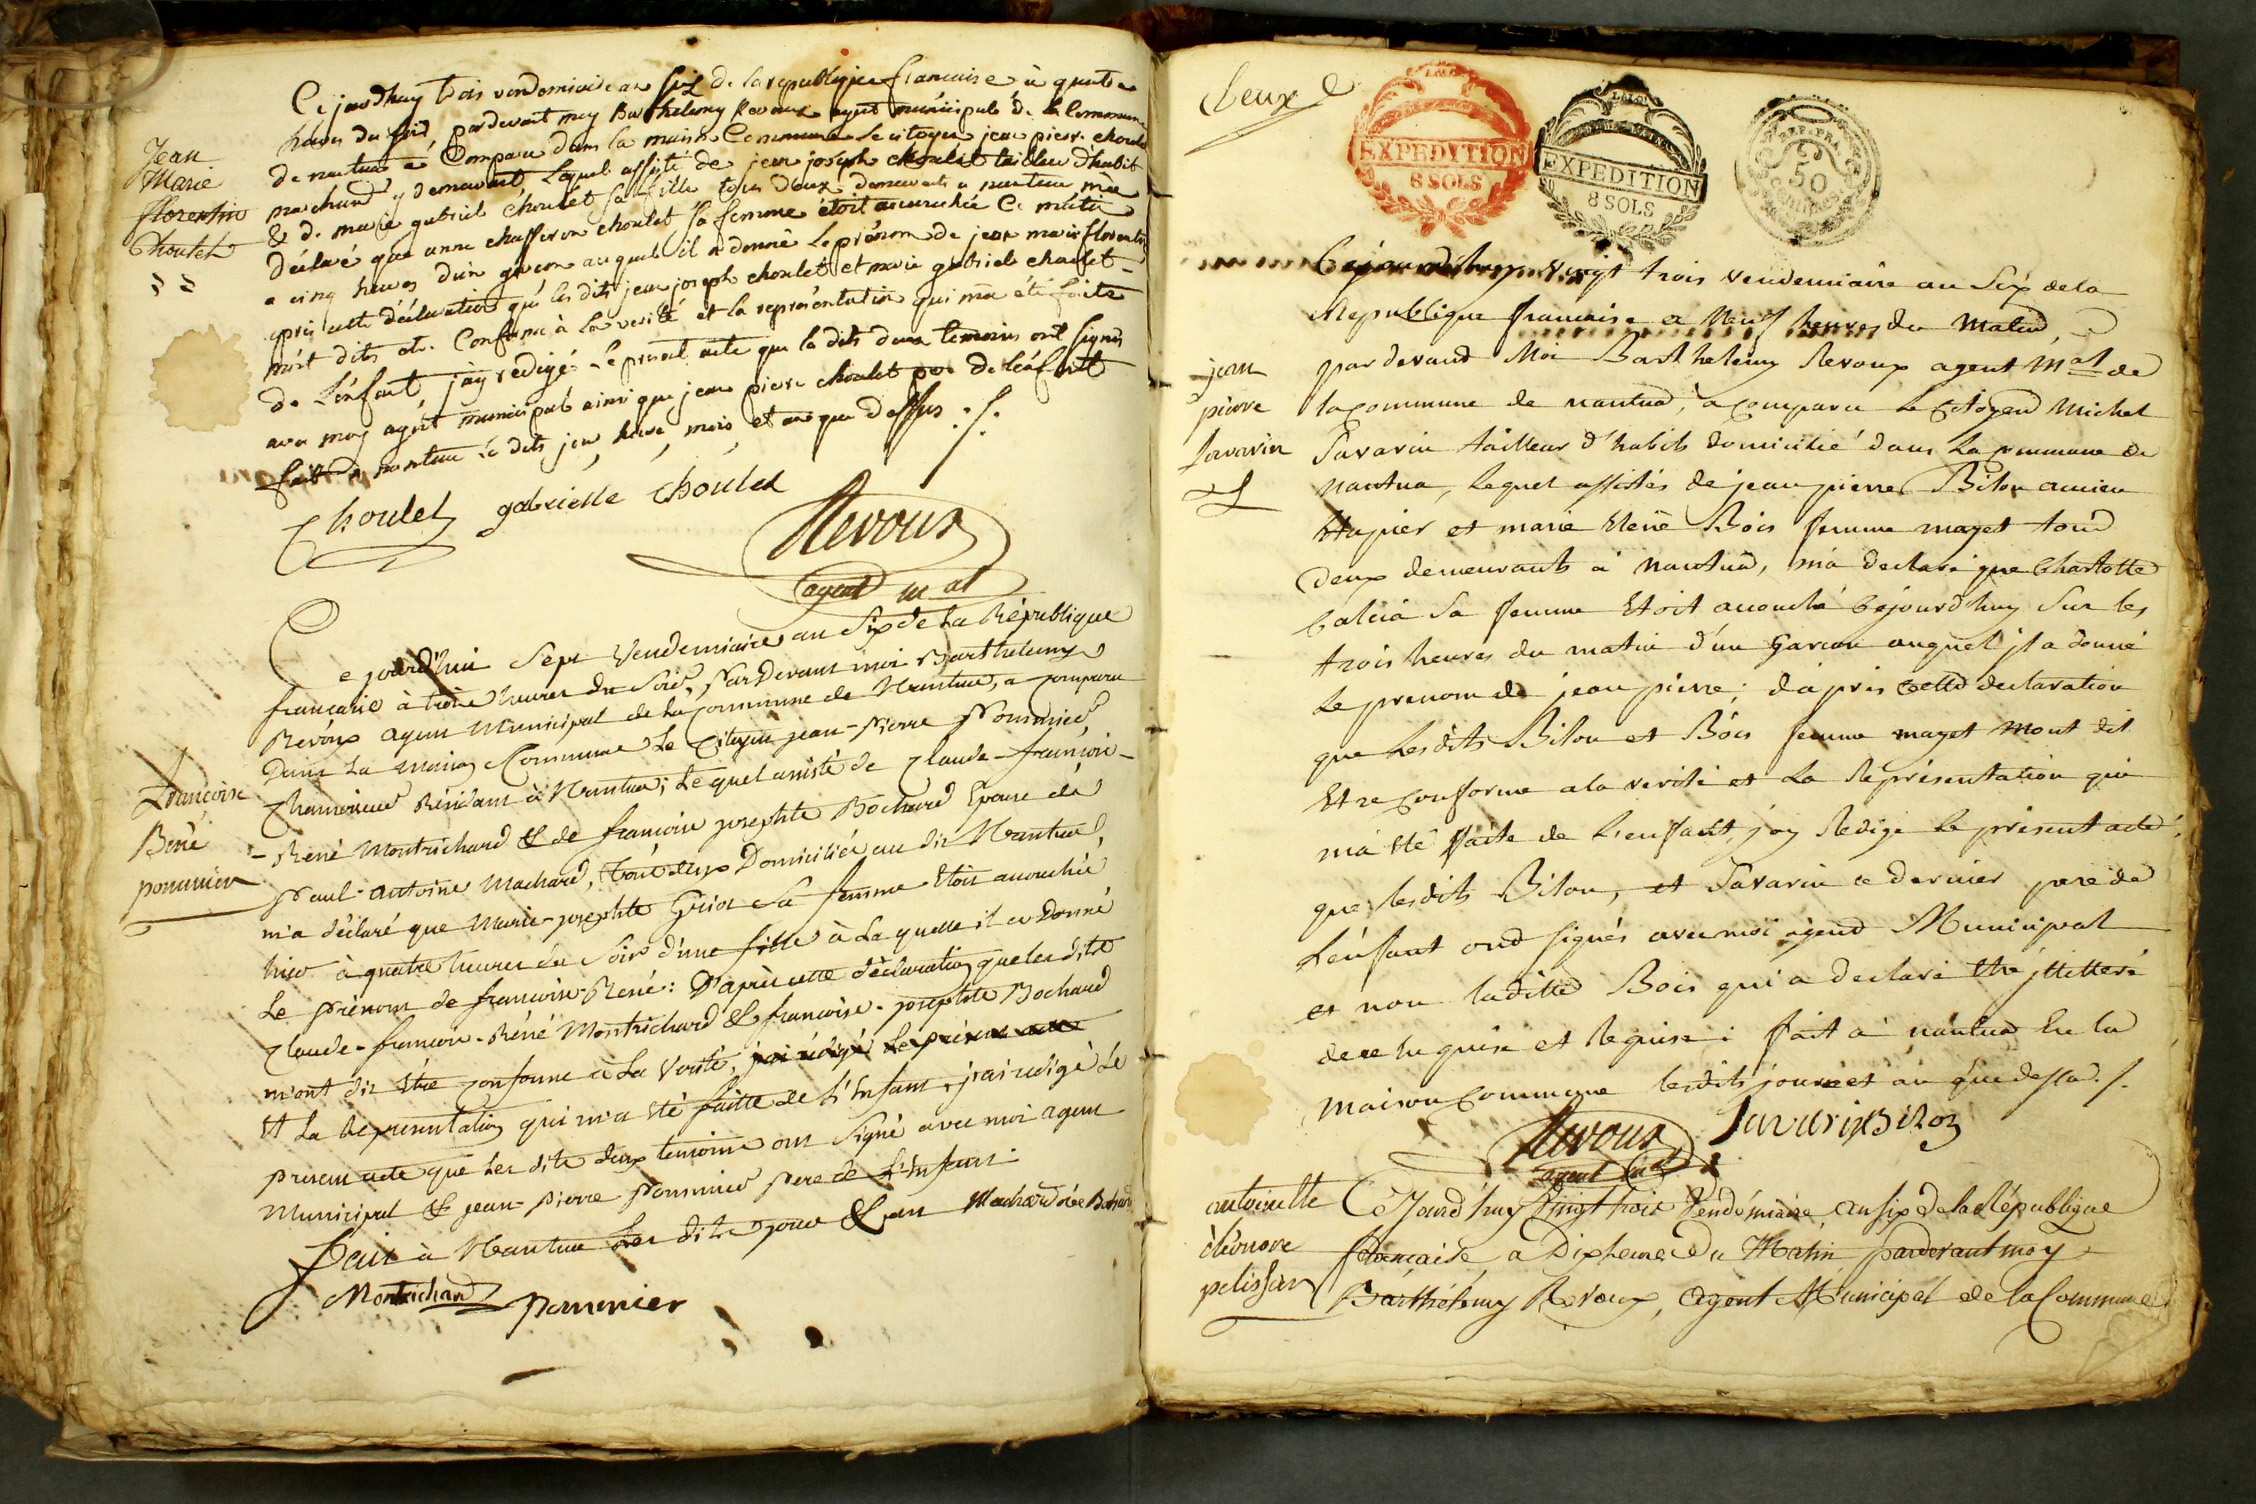 Jean
Marie
florentin
Choulet
Ce jourdhuy trois vendemiaire an six de la republique francaise à quatre
heures du soir, pardevant moy Barthelemy Revoux agent municipal de la Commune
de nantua a Comparu dans la maison Commune le citoyen jean pierre choulet
marchand y demeurant, lequel assisté de jean joseph choulet tailleur d'habit
& de marie gabriel choulet sa fille tous deux demeurants a nantua m'a
déclaré que anne chasseron choulet sa femme étoit accouchée Ce matin
a cinq heures d'un garcon auquel il a donné le prénom de jean marie florentin
apres cette déclaration que les dits jean joseph choulet et marie gabriel choulet
m'ont dits etre Conforme à la verité et la representation qui m'a été faite
de L'enfant, j'ay rédigé le present acte que les dits deux temoins ont signés
avec moy agent municipal ainsi que jean pierre choulet pere de l'enfant
fait a nantua les dits jour, heure, mois et an que dessus ./.
Choulet gabrielle choulet
Revoux
agent m al
Francoise
René
pommier
Ce jourd'hui Sept Vendemiaire an Six de La République
francaise à trois heures du Soir, Pardevant moi Barthelemy
Revoux agent Municipal de la Commune de Nantua, a comparu
Dans La Maison Commune Le Citoyen jean-Pierre Pommier
Chamoiseur Résidant à Nantua; Lequel assisté de Claude-françois-
-René Montrichard & de francoise josephte Bochard Epouse de
Paul-antoine Machard, Tous deux Domiciliés au dit Nantua,
m'a déclaré que Marie-josephte Guiot Sa femme étoit accouchée
hier à quatre heures du Soir d'une fille à Laquelle il a Donné
Le Prénom de francoise-René: D'après cette déclaration que les dits
Claude-francois-René Montrichard & francoise-josephte Bochard
m'ont dit être conforme à La Verité, j'ai rédigé le présent acte
Et La Representation qui m'a été faitte de L'Enfant, j'ai redigé Le
present acte que Les dits deux temoins ont Signé avec moi agent
Municipal & jean-Pierre Pommier Pere de L'Enfant
Fait à Nantua Les dits jour & an Machard née Bochard
Montrichard Pommier
deux
EXPEDITION
8 SOLS
EXPEDITION
8 SOLS
REP. FRA.
50
CENTIMES
jean
pierre
Savarin
Cejourdhuy vingt trois vendemiaire an Six de la
Republique francaise a Neuf heures du Matin,
par devant Moi Barthelemy Revoux agent Mal de
la commune de nantua, a comparu le Citoyen Michel
Savarin tailleur d'habits domicilié dans la commune de
nantua, lequel assistés de jean pierre Bilon ancien
tupier et marie René Bois femme mayet tous
deux demeurants à nantua, m'a declaré que Charlotte
Calcia Sa femme Etoit acouché Cejourdhuy Sur les
trois heures du matin d'un Garcon auquel jl a donné
le prenom de jean pierre; d'apres cette declaration
que lesdits Bilon et Bois femme mayet mont dit
Etre conforme a la verité et La Représentation qui
m'a Eté faite de Lenfant, jay Redigé le présent acte
que lesdits Bilon, et Savarin ce dernier pere de
L'enfant ond signés avec moi agend Municipal
et non ladite Bois qui a declaré Etre jlletteré
de ce enquise et Requise: fait a nantua En la
maison commune lesdits jour et an que dessus ./.
Revoux Savarin Bilon
agent m al
antoinette
éléonore
pelissan
Cejourd'huy Vingt trois Vendémiaire, an six de la République
française, à Dix heures Du Matin, pardevant moy
Barthélemy Revoux, agent Municipal de la Commune